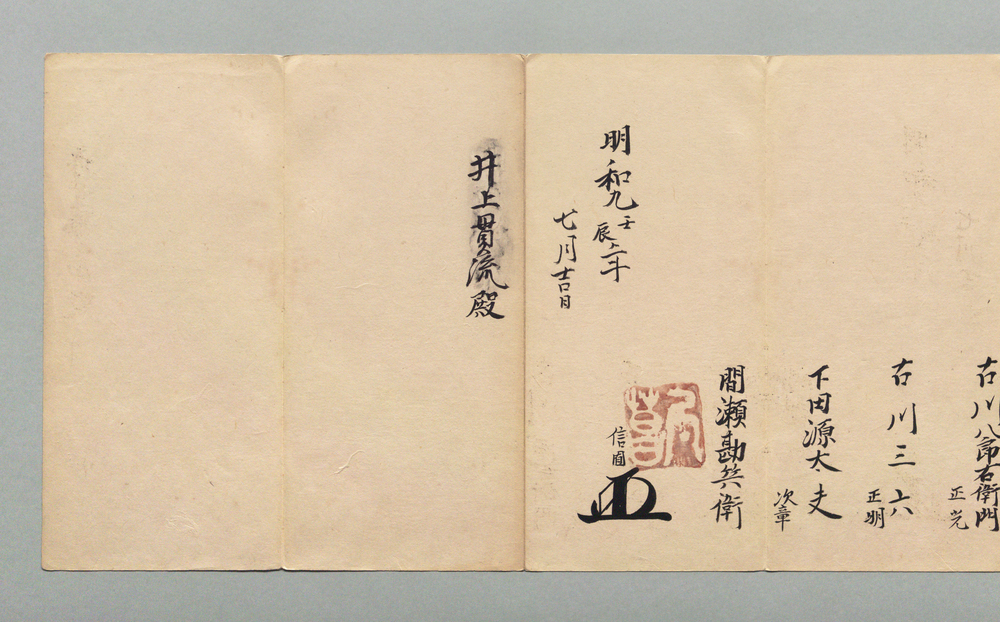 古川八郎右衛門
正光
古川三六
正明
下田源太夫
次章
間瀬勘兵衛
信圓
明和九壬辰年
七月吉日
井上貫流殿